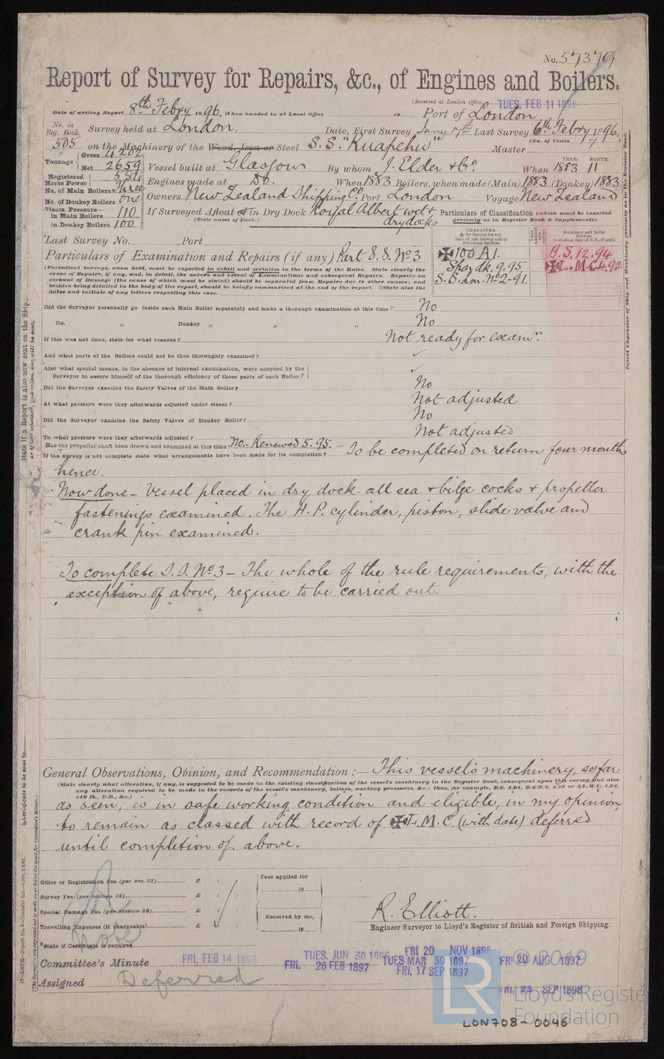 No. 57379
Report of Survey for Repairs, &c., of Engines and Boilers.
(Received at London Office TUES. FEB 11 1896
Date of writing Report 8th Febry 1896, When handed in at Local Office 18 Port of London
No. in Reg. Book. Survey held at London. Date, First Survey Jany 7th Last Survey 6th Febry 1896
(No. of Visits
505 on the Machinery of the Wood, Iron or Steel S.S. "Ruapehu" Master
Tonnage Gross
Net 2659
Vessel built at Glasgow By whom J. Elder & Co. When YEAR. 1883 MONTH. 11
Registered Horse Power
Engines made at Do. When 1883 Boilers, when made (Main) 1883 (Donkey) 1883
No. of Main Boilers Three
No. of Donkey Boilers One
Owners New Zealand Shipping Co. Port London Voyage New Zealand
Steam Pressure in Main Boilers 110
in Donkey Boilers 100
If Surveyed Afloat or in Dry Dock Royal Albert wet & drydocks
(State name of Dock.)
Particulars of Classification (which must be inserted precisely as in Register Book & Supplements).
Last Survey No. Port
Particulars of Examination and Repairs (if any) Part S.S. No 3
(Periodical Surveys, when held, must be reported in detail and seriatim in the terms of the Rules.
✠100A1.
Spar dk. 9.95
S.S. Lon. No 2-91.
B.S. 12.94
✠L.M.C. 4.92
Did the Surveyor personally go inside each Main Boiler separately and make a thorough examination at this time? No
Do. " Donkey " " " No
If this was not done, state for what reasons? Not ready for examn.
And what parts of the Boilers could not be thus thoroughly examined?
Also what special means, in the absence of internal examination, were adopted by the Surveyor to assure himself of the thorough efficiency of those parts of each Boiler?
Did the Surveyor examine the Safety Valves of the Main Boiler? No
At what pressure were they afterwards adjusted under steam? Not adjusted
Did the Surveyor examine the Safety Valves of Donkey Boiler? No
To what pressure were they afterwards adjusted? Not adjusted
Has the propeller shaft been drawn and examined at this time? No. Renewed 5.95.
If the Survey is not complete state what arrangements have been made for its completion? - To be completed on return four months
hence.
Now done - Vessel placed in dry dock. all sea & bilge cocks & propeller
fastenings examined. The H.P. cylinder, piston, slide valve and
crank pin examined.
To complete S.S. No 3 - The whole of the rule requirements, with the
exception of above, require to be carried out.
General Observations, Opinion, and Recommendation :- This vessel's machinery, so far
as seen, is in safe working condition and eligible, in my opinion,
to remain as classed with record of ✠L.M.C. (with date) deferred
until completion of above.
Office or Registration Fee (per Sec. 27) £
Survey Fee (per Section 28) £
Special Damage Fee (per Section 28) £
Travelling Expenses (if chargeable) £
Fees applied for
18
Received by me,
18
R. Elliott.
Engineer Surveyor to Lloyd's Register of British and Foreign Shipping.
State if Certificate is required
Committee's Minute
FRI. FEB 14 1896
TUES. JUN 30 1896
FRI 20 NOV 1896
FRI. 26 FEB 1897
TUES MAR 30 1897
FRI 20 AUG 1897
FRI. 17 SEP 1897
FRI. 23 SEP 1898
Assigned Deferred
© 2019
LR
Lloyd's Register
Foundation
LON708-0046